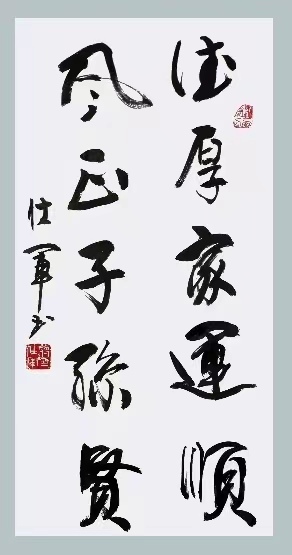 德厚家運順
風正子孫賢
仕軍书